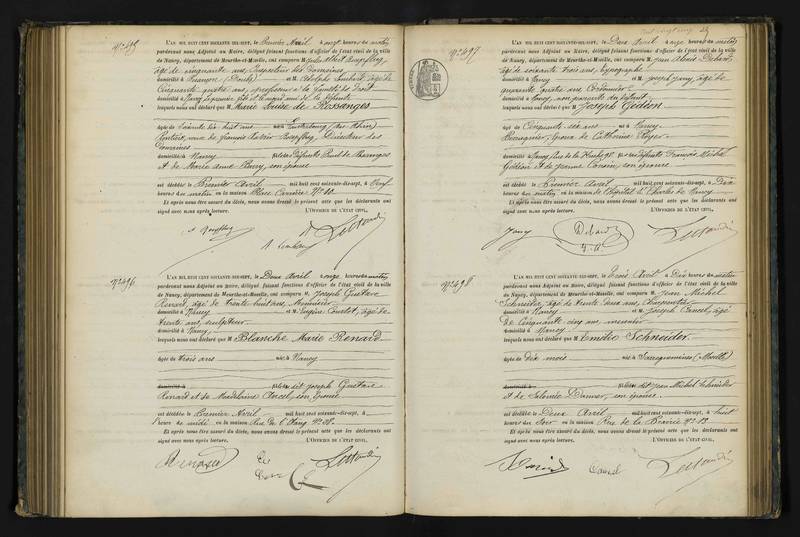 N° 495
L'AN MIL HUIT CENT SOIXANTE-DIX-SEPT, le Premier Avril à onze heures du matin
pardevant nous Adjoint au Maire, délégué faisant fonctions d'officier de l'état civil de la ville
de Nancy, département de Meurthe-et-Moselle, ont comparu M. Jules Albert
âgé de cinquante ans, Inspecteur des Domaines
domicilié à Besançon (Doubs) et M. Adolphe Lombard, âgé de
Cinquante quatre ans, professeur à la faculté de Droit
domicilié à Nancy, le premier fils et le second ami de la défunte
lesquels nous ont déclaré que M Marie Louise de
âgée de Soixante dix huit ans née à (Bas Rhin)
veuve de François Xavier Directeur des
Domaines
domiciliée à Nancy fille des défunts Paul de
et de Marie Anne son épouse
est décédée le Premier Avril mil huit cent soixante-dix-sept, à Neuf
heures du matin en la maison Place Carrière N° 40
Et après nous être assuré du décès, nous avons dressé le présent acte que les déclarants ont
signé avec nous après lecture. L'OFFICIER DE L'ÉTAT CIVIL,
N° 496
L'AN MIL HUIT CENT SOIXANTE-DIX-SEPT, le Deux Avril onze heures du matin
pardevant nous Adjoint au Maire, délégué faisant fonctions d'officier de l'état civil de la ville
de Nancy, département de Meurthe-et-Moselle, ont comparu M. Joseph Gustave
Renard, âgé de Trente huit ans, Menuisier
domicilié à Nancy et M. Eugène Courtot, âgé de
trente ans, sculpteur
domicilié à Nancy
lesquels nous ont déclaré que M Blanche Marie Renard
âgée de Trois ans née à Nancy
domicilié à fille dudit Joseph Gustave
Renard et de Madeleine Ancel, son épouse
est décédée le Premier Avril mil huit cent soixante-dix-sept, à
heure de midi en la maison Rue de l'Etang N° 28
Et après nous être assuré du décès, nous avons dressé le présent acte que les déclarants ont
signé avec nous après lecture. L'OFFICIER DE L'ÉTAT CIVIL,
Renard
N° 497
L'AN MIL HUIT CENT SOIXANTE-DIX-SEPT, le Deux Avril à onze heures du matin
pardevant nous Adjoint au Maire, délégué faisant fonctions d'officier de l'état civil de la ville
de Nancy, département de Meurthe-et-Moselle, ont comparu M. Jean Alexis
âgé de soixante trois ans, typographe
domicilié à Nancy et M. Joseph Jany, âgé de
quarante quatre ans Cordonnier
domicilié à Nancy, non parents du défunt
lesquels nous ont déclaré que M Joseph Gédéon
âgé de Cinquante six ans né à Nancy
époux de Catherine
domicilié à Nancy, Rue de la fils des défunts François Michel
Gédéon et de Jeanne son épouse
est décédé le Premier Avril mil huit cent soixante-dix-sept, à Dix
heures du matin en la maison de l'hôpital St Charles de Nancy
Et après nous être assuré du décès, nous avons dressé le présent acte que les déclarants ont
signé avec nous après lecture. L'OFFICIER DE L'ÉTAT CIVIL,
Jany
N° 498
L'AN MIL HUIT CENT SOIXANTE-DIX-SEPT, le Trois Avril à Dix heures du matin
pardevant nous Adjoint au Maire, délégué faisant fonctions d'officier de l'état civil de la ville
de Nancy, département de Meurthe-et-Moselle, ont comparu M. Jean Michel
Schneider, âgé de trente deux ans, Charpentier
domicilié à Nancy et M. Joseph Cancel, âgé
de Cinquante cinq ans, menuisier
domicilié à Nancy
lesquels nous ont déclaré que M Emilie Schneider
âgée de Dix mois née à Sarreguemines (Moselle)
domicilié à fille dudit Jean Michel Schneider
et de Salomée Danner, son épouse
est décédée le Deux Avril mil huit cent soixante-dix-sept, à huit
heures du soir en la maison Rue de la Prairie N° 13
Et après nous être assuré du décès, nous avons dressé le présent acte que les déclarants ont
signé avec nous après lecture. L'OFFICIER DE L'ÉTAT CIVIL,